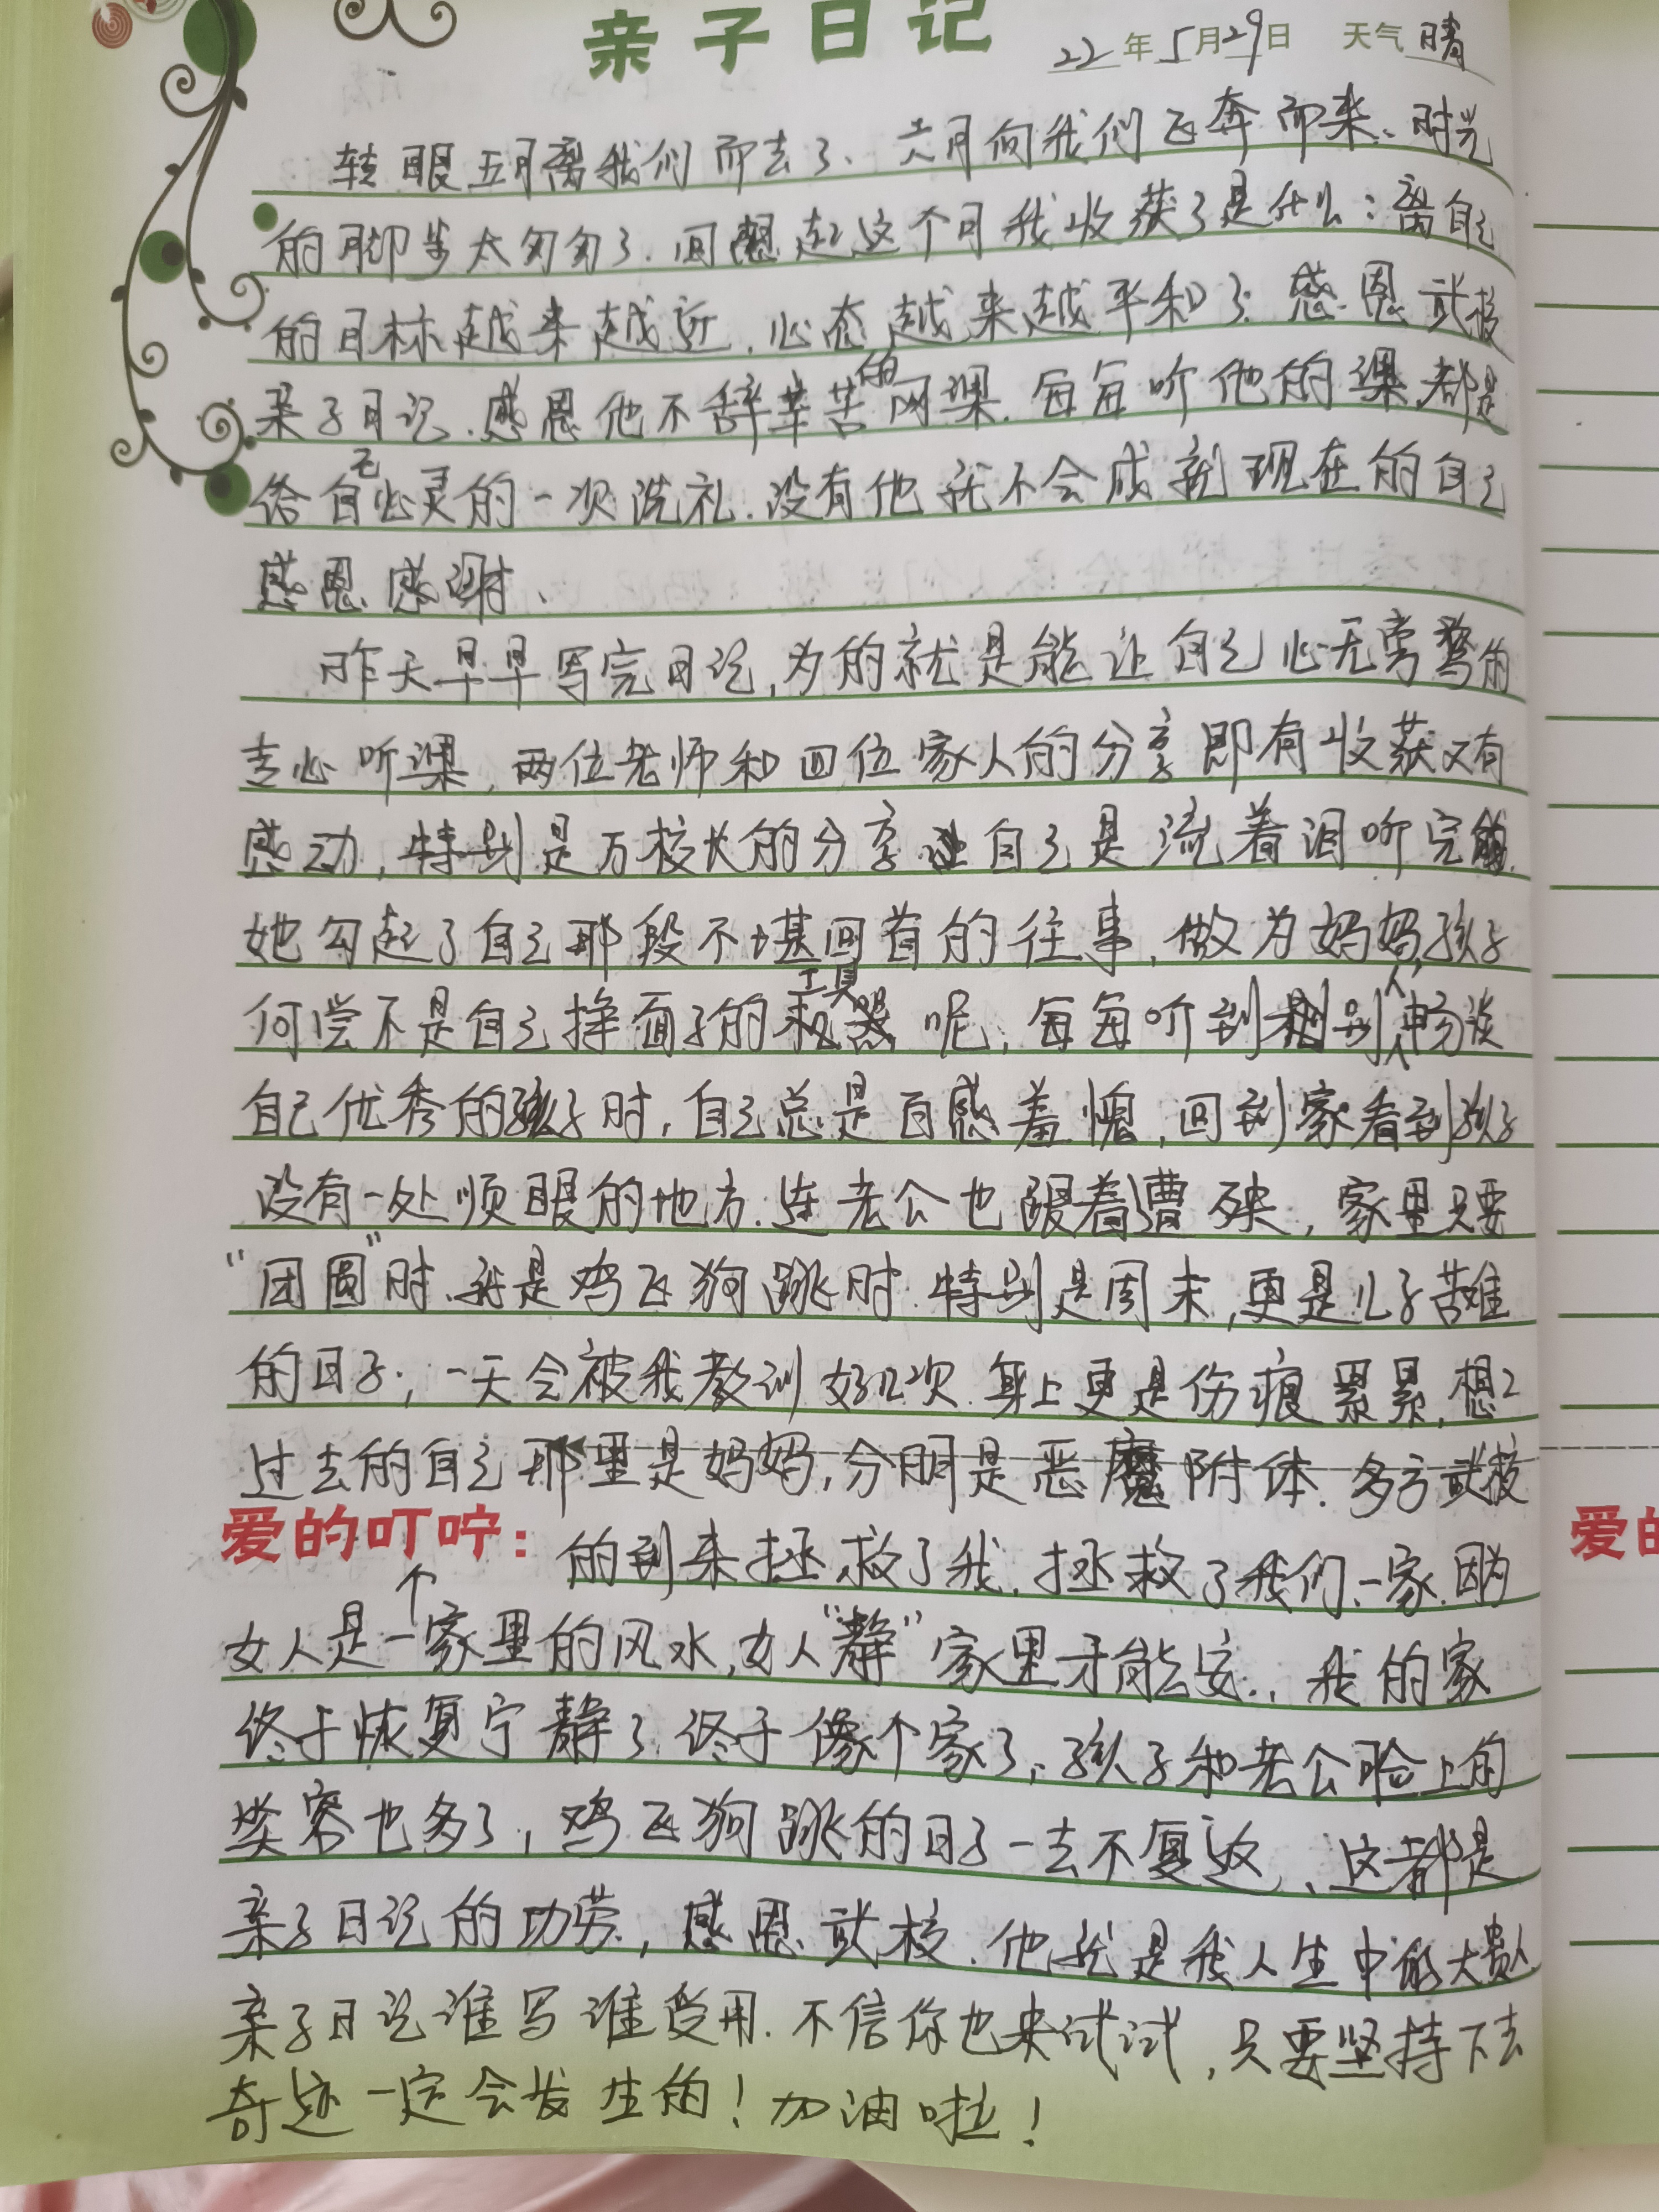 亲子日记 22年5月29日 天气晴
转眼五月离我们而去了、六月向我们飞奔而来、时光
的脚步太匆匆了.回想起这个月我收获了是什么:离自己
的目标越来越近.心态越来越平和了.感恩武校
亲子日记.感恩他不辞辛苦的网课.每每听他的课.都是
给自己心灵的一次洗礼.没有他就不会成就现在的自己
感恩感谢、
昨天早早写完日记,为的就是能让自己心无旁骛的
专心听课,两位老师和四位家人的分享即有收获又有
感动,特别是万校长的分享让自己是流着泪听完的.
她勾起了自己那段不堪回首的往事,做为妈妈,孩子
何尝不是自己挣面子的工具呢,每每听到别人畅谈
自己优秀的孩子时,自己总是百感羞愧,回到家看到孩子
没有一处顺眼的地方.连老公也跟着遭殃,家里只要
“团圆”时.就是鸡飞狗跳时.特别是周末,更是儿子苦难
的日子,一天会被我教训好几次.身上更是伤痕累累,想想
过去的自己那里是妈妈,分明是恶魔附体.多亏武校
爱的叮咛: 的到来拯救了我.拯救了我们一家.因为
女人是一个家里的风水,女人“静”家里才能安.,我的家
终于恢复宁静了.终于像个家了,孩子和老公脸上的
笑容也多了,鸡飞狗跳的日子一去不复返、这都是
亲子日记的功劳,感恩武校.他就是我人生中的大贵人
亲子日记谁写谁受用.不信你也来试试,只要坚持下去
奇迹一定会发生的!加油啦!
爱的